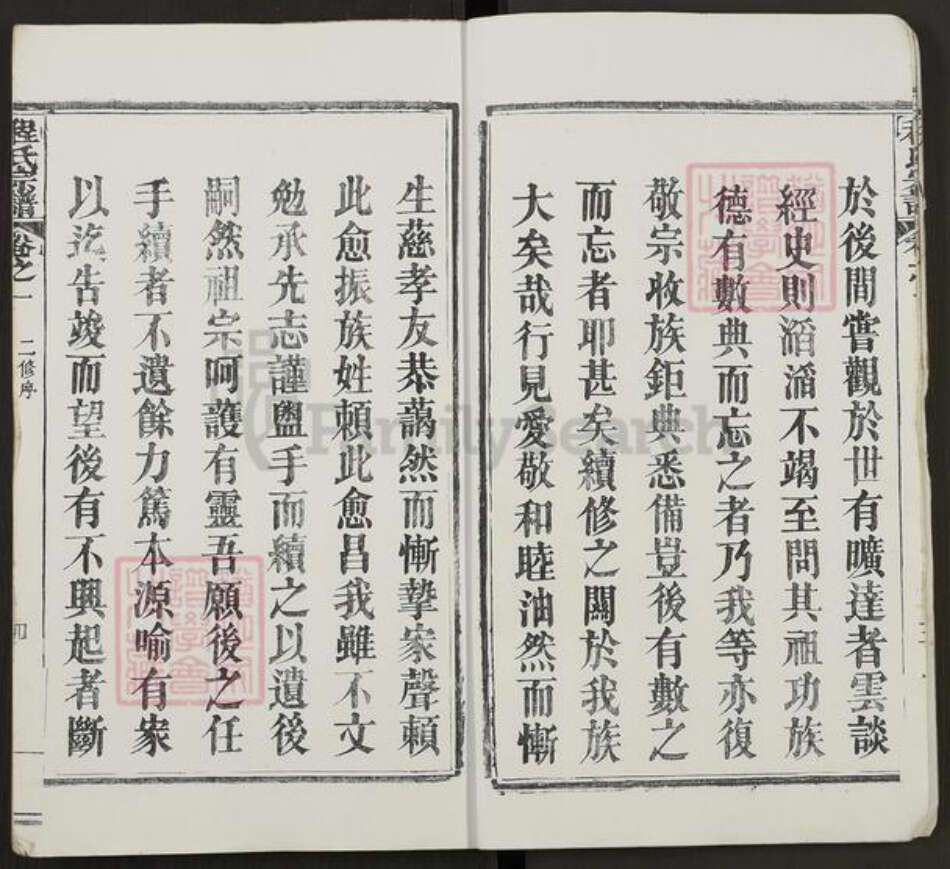 於後間嘗觀於世有曠達者雲談
經史則滔滔不竭至問其祖功族
德有數典而忘之者乃我等亦復
敬宗收族鉅典悉備豈後有數之
而忘者耶甚矣續修之關於我族
大矣哉行見愛敬和睦油然而慚
生慈孝友恭藹然而慚摯家聲賴
此愈振族姓賴此愈昌我雖不文
勉承先志謹盥手而續之以遺後
嗣然祖宗呵護有靈吾願後之任
手續者不遺餘力篤本源喻有家
以迄告竣而望後有不興起者斷
程氏宗譜
卷之一
二修序
FamilySearch